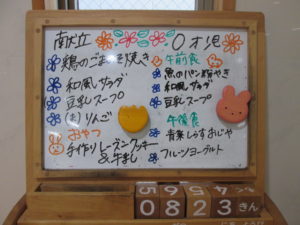 献立
鶏のごまみそ焼き
和風サラダ
豆乳スープ
りんご
おやつ
手作りレーズンクッキー
&牛乳
0才児
午前食
魚のパン粉やき
和風サラダ
豆乳スープ
午後食
青菜しらすおじや
フルーツヨーグルト
0823きん